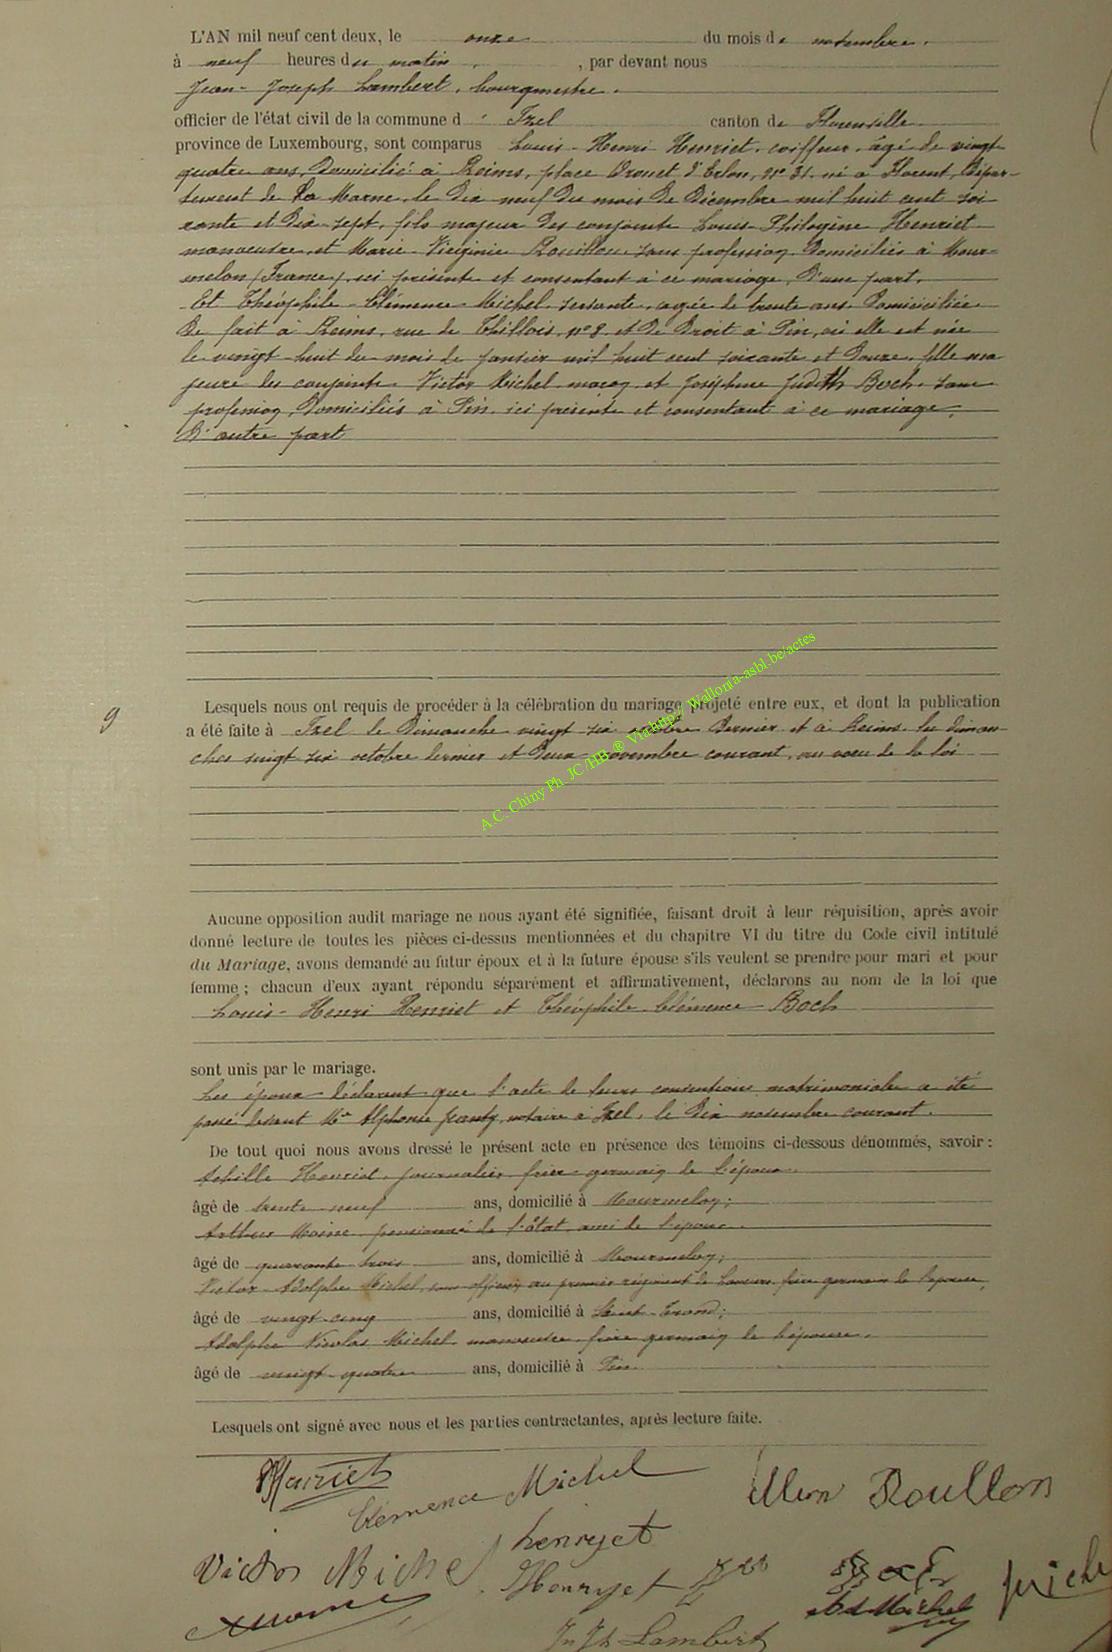 L'AN mil neuf cent deux, le onze du mois de novembre.
à neuf heures du matin, par devant nous
Jean-Joseph Lambert, bourgmestre.
officier de l'état civil de la commune d'Izel canton de Florenville
province de Luxembourg, sont comparus Louis-Henri Henriet, coiffeur, âgé de vingt-
quatre ans, Domicilié à Reims, place Drouet d'Erlon, n° 31. né à Florent, Dépar-
tement de La Marne, le Dix neuf du mois de Décembre mil huit cent soi
xante et Dix-sept, fils majeur des conjoints Louis-Philogène Henriet
manoeuvre, et Marie-Virginie Rouillon, sans profession, Domiciliés à Mour-
melon (France), ici présents et consentant à ce mariage, D'une part.
Et Théophile-Clémence Michel, servante, agée de trente ans, Domiciliée
De fait à Reims, rue de Thillois, n° 8, et De Droit à Pin, où elle est née
le vingt-huit du mois de janvier mil huit cent soixante et Douze, fille ma
jeure des conjoints Victor Michel, maçon et Joséphine Judith Boch, sans
profession, Domiciliés à Pin, ici présents et consentant à ce mariage,
D'autre part
Lesquels nous ont requis de procéder à la célébration du mariage projeté entre eux, et dont la publication
a été faite à Izel le Dimanche vingt six octobre Dernier et à Reims, les diman
ches vingt six octobre dernier et Deux novembre courant, au voeu de la loi
A.C. Chiny Ph. JC/HB ® Via http:// Wallonia-asbl.be/actes
9
Aucune opposition audit mariage ne nous ayant été signifiée, faisant droit à leur réquisition, après avoir
donné lecture de toutes les pièces ci-dessus mentionnées et du chapitre VI du titre du Code civil intitulé
du Mariage, avons demandé au futur époux et à la future épouse s'ils veulent se prendre pour mari et pour
femme ; chacun d'eux ayant répondu séparément et affirmativement, déclarons au nom de la loi que
Louis-Henri Henriet et Théophile-Clémence Boch
sont unis par le mariage.
Les époux déclarent que l'acte de leurs conventions matrimoniales a été
passé devant Me Alphonse notaire à Izel, le Dix novembre courant.
De tout quoi nous avons dressé le présent acte en présence des témoins ci-dessous dénommés, savoir :
Achille Henriet, journalier, frère germain de l'époux.
âgé de trente neuf ans, domicilié à Mourmelon;
Arthur Moine, pensionné de l'état, ami de l'époux.
âgé de quarante trois ans, domicilié à Mourmelon;
Victor-Adolphe Michel, sous officier au premier régiment de lanciers, frère germain de l'épouse,
âgé de vingt-cinq ans, domicilié à Saint-Trond;
Adolphe Nicolas Michel, manoeuvre, frère germain de l'épouse.
âgé de vingt-quatre ans, domicilié à Pin.
Lesquels ont signé avec nous et les parties contractantes, après lecture faite.
Henriet
Clémence Michel
Roullon
Victor Michel
henryet
Henryet
Michel
Ad Michel
Jn Jh Lambert